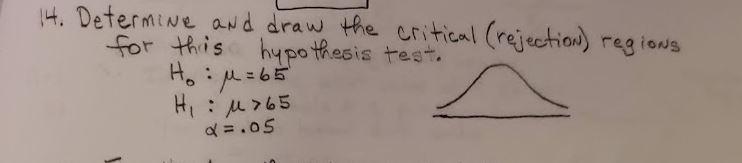 14. Determine and draw the critical (rejection) regions
for this hypothesis test.
H₀ : μ = 65
H₁ : μ > 65
α = .05